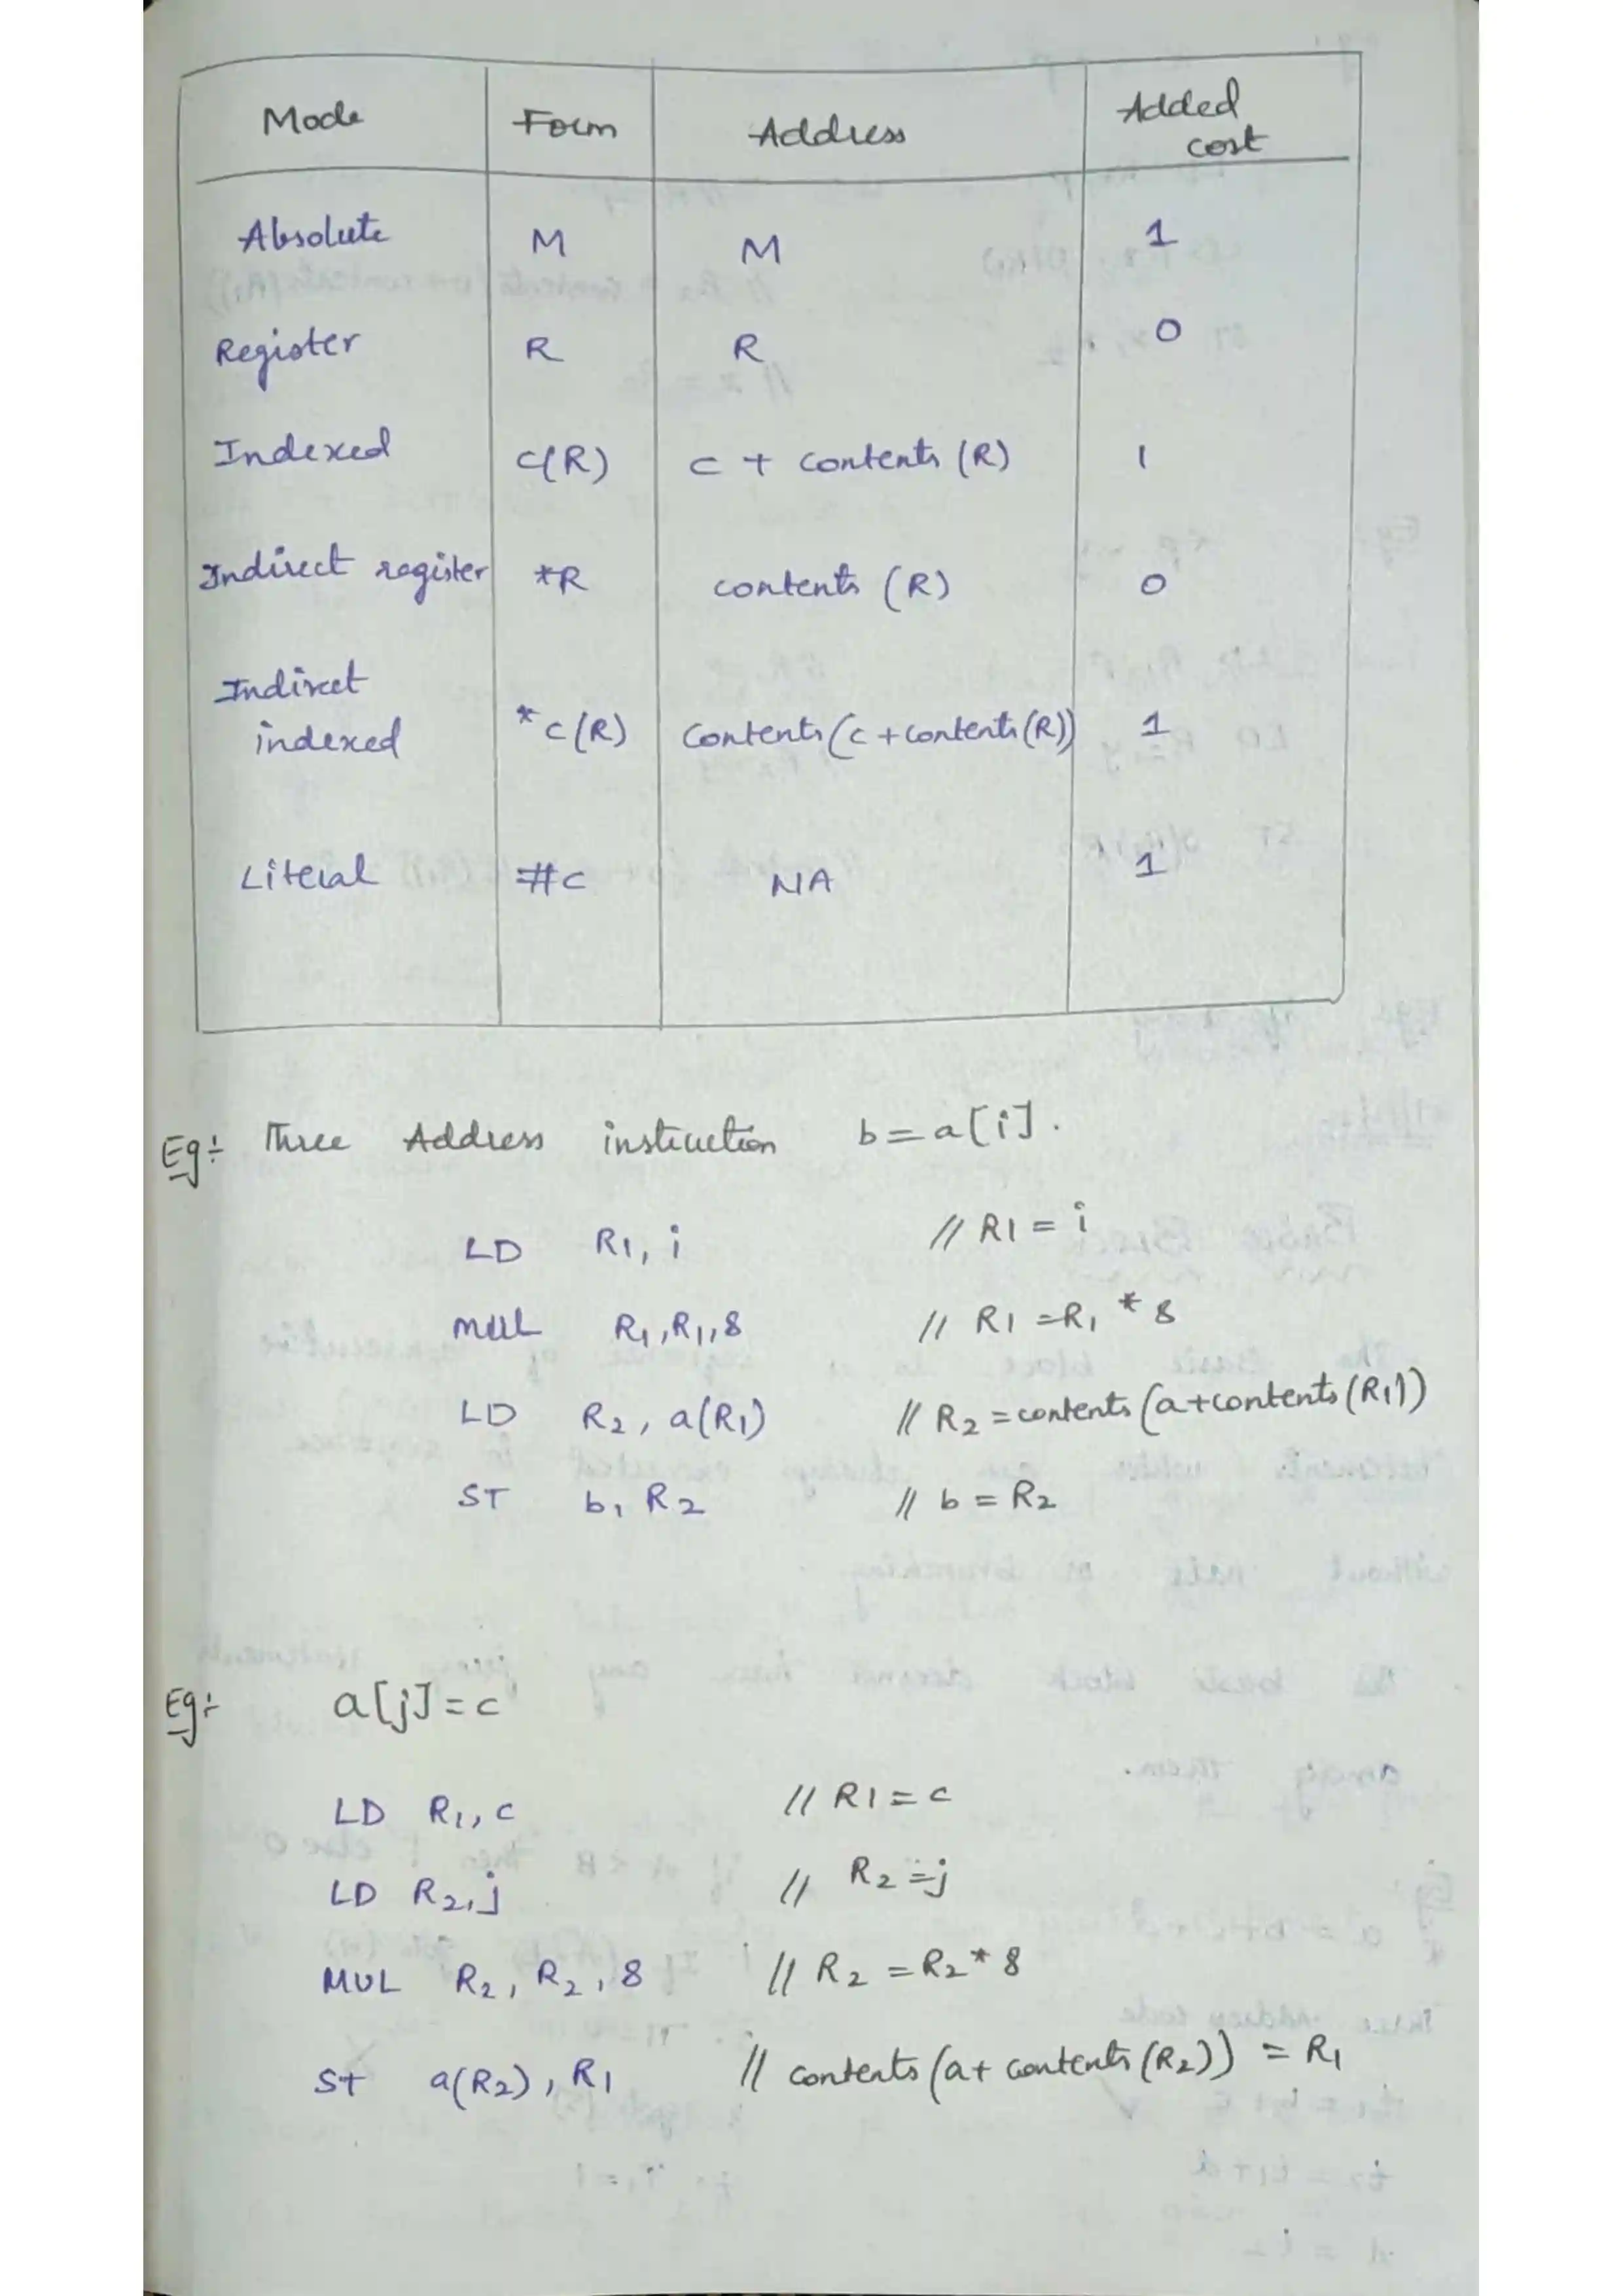 Mode Form Address Added cost
Absolute M M 1
Register R R 0
Indexed c(R) c + contents (R) 1
Indirect register *R contents (R) 0
Indirect indexed *c(R) contents(c + contents(R)) 1
Literal #c NA 1
Eg:- Three Address instruction b = a[i].
LD R1, i // R1 = i
MUL R1, R1, 8 // R1 = R1 * 8
LD R2, a(R1) // R2 = contents (a+contents(R1))
ST b, R2 // b = R2
Eg:- a[j] = c
LD R1, c // R1 = c
LD R2, j // R2 = j
MUL R2, R2, 8 // R2 = R2 * 8
St a(R2), R1 // contents (a+ contents (R2)) = R1